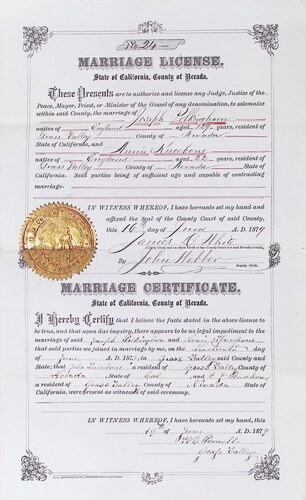 No 24
MARRIAGE LICENSE.
State of California, County of Nevada.
These Presents are to authorize and license any Judge, Justice of the
Peace, Mayor, Priest, or Minister of the Gospel of any denomination, to solemnize
within said County, the marriage of Joseph Polkinghorn
native of England aged 29 years, resident of
Grass Valley County of Nevada
State of California, and Annie Kneebone
native of England aged 22 years, resident of
Grass Valley County of Nevada
State of California. Said parties being of sufficient age and capable of contracting
marriage.
IN WITNESS WHEREOF, I have hereunto set my hand and
affixed the Seal of the County Court of said County,
this 16 day of June A. D. 1879
James D. White
By John Webber
Deputy Clerk.
MARRIAGE CERTIFICATE.
State of California, County of Nevada.
I Hereby Certify that I believe the facts stated in the above license to
be true, and that upon due inquiry, there appears to be no legal impediment to the
marriage of said Joseph Polkinghorn and Annie Kneebone
that said parties were joined in marriage by me, on the day of
June A. D. 187 , in Grass Valley said County and
State; that John Kneebone a resident of Grass Valley County
of Nevada State of Cal and
a resident of Grass Valley County of Nevada State
of California, were present as witnesses of said ceremony.
IN WITNESS WHEREOF, I have hereunto set my hand, this
June A. D. 1879
Grass Valley